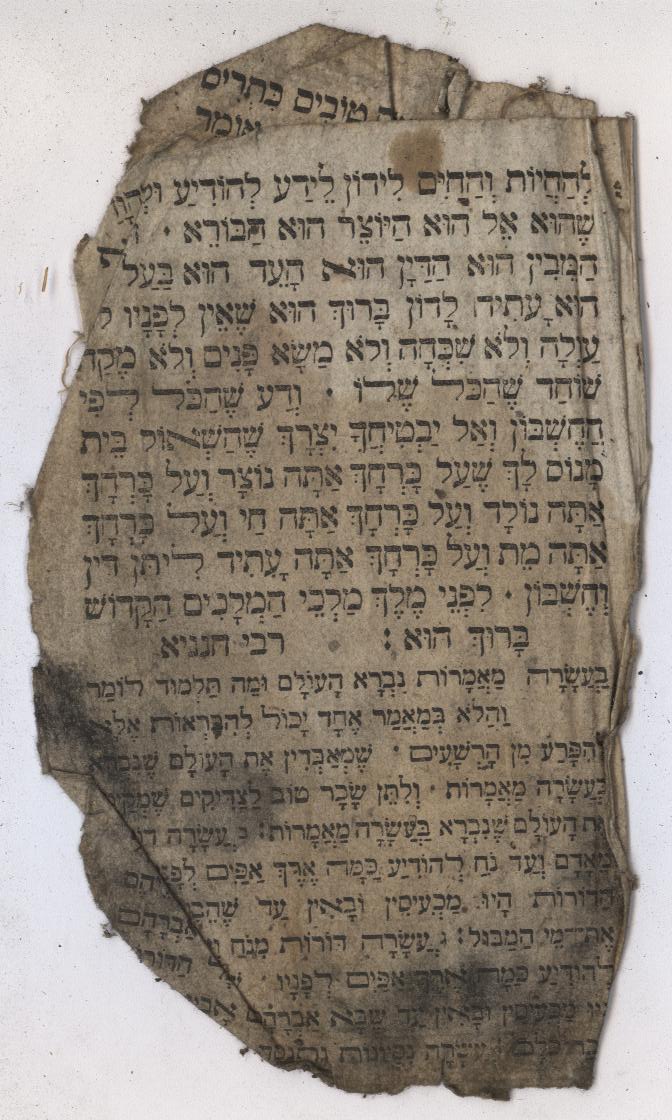 טוֹבִים כִּתְרִיִם
אוֹמר
לְהַחֲיוֹת וְהַחַיִּם לִידוֹן לֵידַע לְהוֹדִיעַ
שֶׁהוּא אֵל הוּא הַיּוֹצֵר הוּא הַבּוֹרֵא ·
הַמֵּבִין הוּא הַדַּיָּן הוּא הָעֵד הוּא בַּעַל
הוּא עָתִיד לָדוּן בָּרוּךְ הוּא שֶׁאֵין לְפָנָיו
עַוְלָה וְלֹא שִׁכְחָה וְלֹא מַשֹּׂא פָּנִים וְלֹא
שׁוֹחַד שֶׁהַכֹּל שֶׁלּוֹ · וְדַע שֶׁהַכֹּל לְפִי
הַחֶשְׁבּוֹן וְאַל יַבְטִיחֲךָ יִצְרָךְ שֶׁהַשְּׁאוֹל בֵּית
מָנוֹס לָךְ שֶׁעַל כָּרְחָךְ אַתָּה נוֹצָר וְעַל כָּרְחָךְ
אַתָּה נוֹלָד וְעַל כָּרְחָךְ אַתָּה חַי וְעַל כָּרְחָךְ
אַתָּה מֵת וְעַל כָּרְחָךְ אַתָּה עָתִיד לִיתֵּן דִּין
וְחֶשְׁבּוֹן · לִפְנֵי מֶלֶךְ מַלְכֵי הַמְּלָכִים הַקָּדוֹשׁ
בָּרוּךְ הוּא : רבי חנניא
בַּעֲשָׂרָה מַאֲמָרוֹת נִבְרָא הָעוֹלָם וּמַה תַּלְמוּד לוֹמַר
וַהֲלֹא בְּמַאֲמַר אֶחָד יָכוֹל לְהִבָּרְאוֹת
לְהִפָּרַע מִן הָרְשָׁעִים · שֶׁמְּאַבְּדִין אֶת הָעוֹלָם שֶׁנִּבְרָא
בַּעֲשָׂרָה מַאֲמָרוֹת · וְלִתֵּן שָׂכָר טוֹב לַצַּדִּיקִים
אֶת הָעוֹלָם שֶׁנִּבְרָא בַּעֲשָׂרָה מַאֲמָרוֹת : ב עֲשָׂרָה
מֵאָדָם וְעַד נֹחַ לְהוֹדִיעַ כַּמָּה אֶרֶךְ אַפַּיִם
הַדּוֹרוֹת הָיוּ מַכְעִיסִין וּבָאִין עַד
אֶת מֵי הַמַּבּוּל : ג עֲשָׂרָה דּוֹרוֹת מִנֹּחַ אַבְרָהָם
לְהוֹדִיעַ כַּמָּה אֶרֶךְ אַפַּיִם לְפָנָיו · הַדּוֹרוֹת
הָיוּ מַכְעִיסִין וּבָאִין עַד שֶׁבָּא אַבְרָהָם אָבִינוּ
כֻּלָּם : עֲשָׂרָה נִסְיוֹנוֹת נִתְנַסָּה